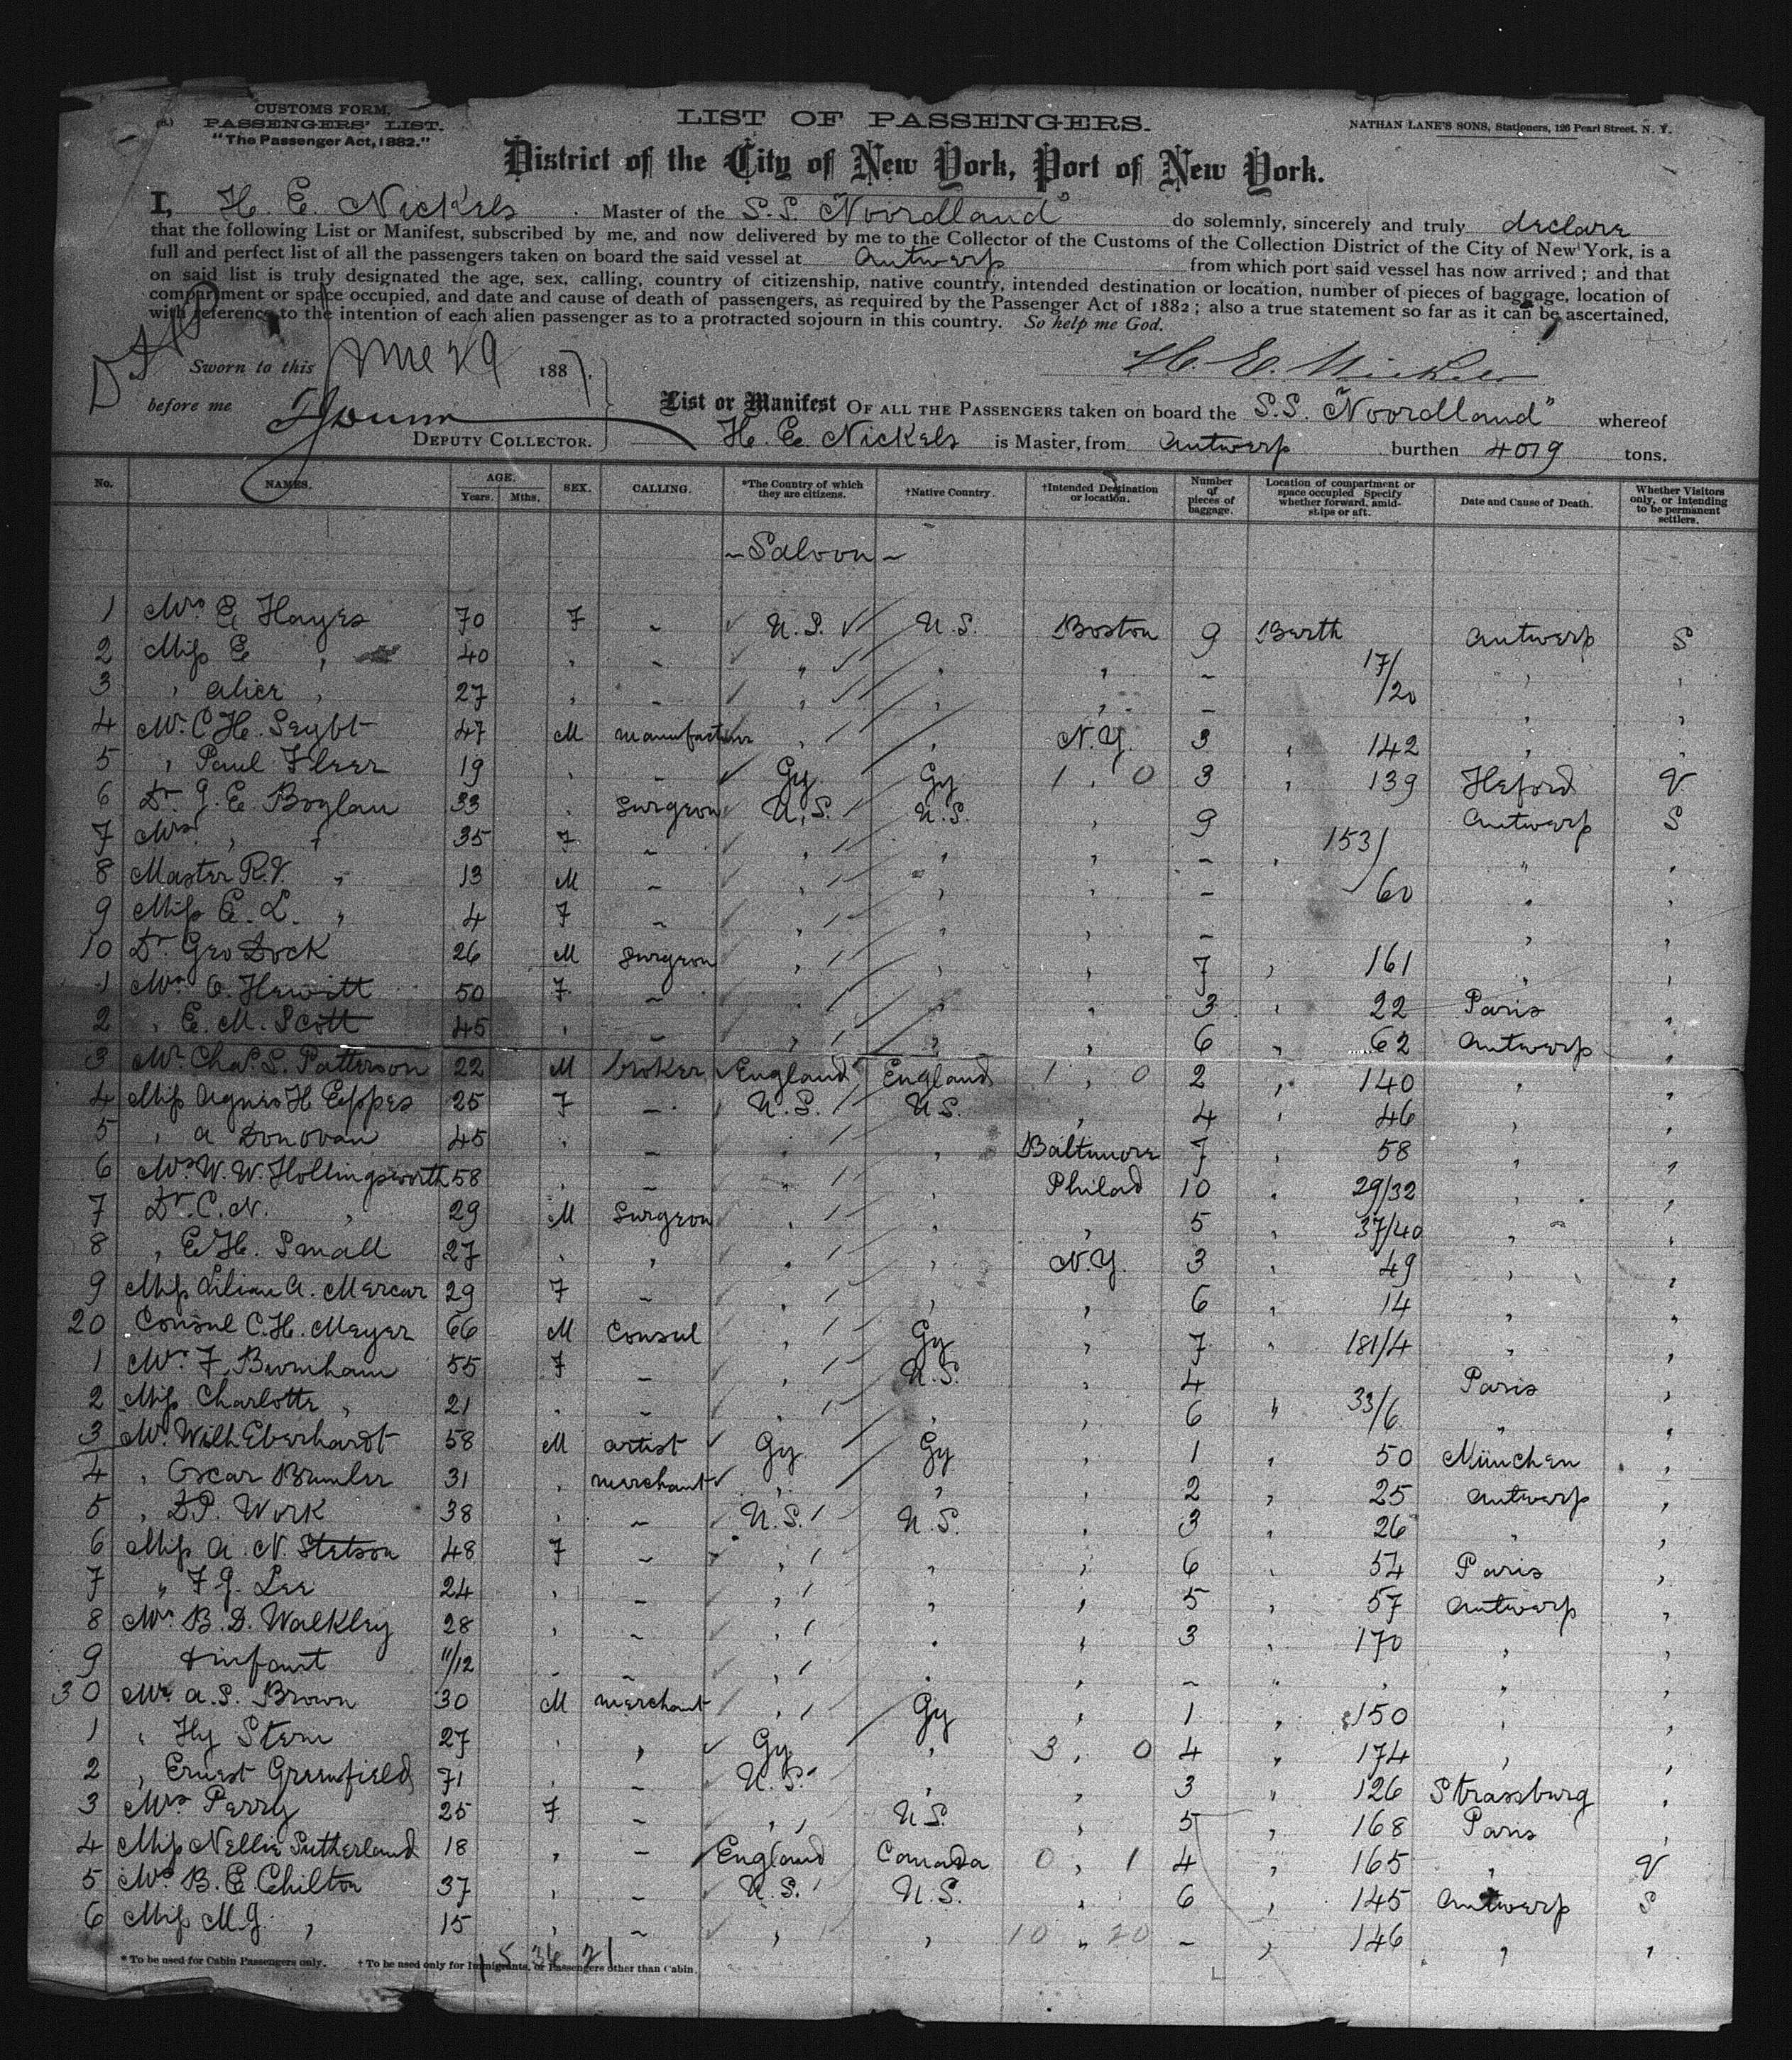 CUSTOMS FORM.
PASSENGERS' LIST.
"The Passenger Act, 1882."
LIST OF PASSENGERS.
NATHAN LANE'S SONS, Stationers, 126 Pearl Street, N. Y.
District of the City of New York, Port of New York.
I, H. E. Nickels Master of the S.S. "Noordland" do solemnly, sincerely and truly declare
that the following List or Manifest, subscribed by me, and now delivered by me to the Collector of the Customs of the Collection District of the City of New York, is a
full and perfect list of all the passengers taken on board the said vessel at Antwerp from which port said vessel has now arrived; and that
on said list is truly designated the age, sex, calling, country of citizenship, native country, intended destination or location, number of pieces of baggage, location of
compartment or space occupied, and date and cause of death of passengers, as required by the Passenger Act of 1882; also a true statement so far as it can be ascertained,
with reference to the intention of each alien passenger as to a protracted sojourn in this country. So help me God.
Sworn to this June 29 1887.
H. E. Nickels
before me
DEPUTY COLLECTOR.
List or Manifest OF ALL THE PASSENGERS taken on board the S.S. "Noordland" whereof
H. E. Nickels is Master, from Antwerp burthen 4019 tons.
No. NAMES. AGE. Years. Mths. SEX. CALLING. *The Country of which they are citizens. †Native Country. †Intended Destination or location. Number of pieces of baggage. Location of compartment or space occupied Specify whether forward, amid-ships or aft. Date and Cause of Death. Whether Visitors only, or intending to be permanent settlers.
~ Saloon ~
1 Mrs E Hayes 70 F ~ U.S. U.S. Boston 9 Berth Antwerp S
2 Miss E " 40 " ~ " " " ~ 17/ " "
3 " Alice " 27 " ~ " " " ~ /20 " "
4 Mr C.H. Seybt 47 M manufacturer " " N.Y. 3 " 142 " "
5 " Paul Fleer 19 " ~ Gy Gy 1 " 0 3 " 139 Heford V
6 Dr. J. E. Boylan 33 " Surgeon U.S. U.S. " 9 Antwerp S
7 Mrs " " 35 F ~ " " " ~ " 153/ " "
8 Master R.V. " 13 M ~ " " " ~ 60 " "
9 Miss E. L. " 4 F ~ " " " ~ " "
10 Dr Geo Dock 26 M Surgeon " " " 7 " 161 " "
1 Mrs C. Hewitt 50 F ~ " " 3 " 22 Paris "
2 " E. M. Scott 45 " ~ " " " 6 " 62 Antwerp "
3 Mr Chas. S. Patterson 22 M broker England England 1 " 0 2 " 140 " "
4 Miss Agnes H Eppes 25 F ~ U.S. U.S. " 4 " 46 " "
5 " A Donovan 45 " ~ " " Baltimore 7 " 58 " "
6 Mrs W. W. Hollingsworth 58 " ~ " " Philad 10 " 29/32 " "
7 Dr. C. N. " 29 M Surgeon " " " 5 " 37/40 " "
8 " E.H. Small 27 " " " " N.Y. 3 " 49 " "
9 Miss Lilian A. Mercur 29 F ~ " " " 6 " 14 " "
20 Consul C.H. Meyer 66 M Consul " Gy " 7 " 181/4 " "
1 Mrs F. Burnham 55 F ~ " U.S. " 4 Paris "
2 Miss Charlotte " 21 " ~ " " " 6 " 33/6 " "
3 Mr. Wilh Eberhardt 58 M artist Gy Gy " 1 " 50 München "
4 " Oscar Brumler 31 " merchant " " 2 " 25 Antwerp "
5 " D.P. Work 38 " ~ U.S. U.S. " 3 " 26 " "
6 Miss A. N. Stetson 48 F ~ " " " 6 " 54 Paris "
7 " F. J. Lee 24 " ~ " " " 5 " 57 Antwerp "
8 Mrs B. D. Walkley 28 " ~ " " " 3 " 170 " "
9 & infant 11/12 " ~ " " " ~ " " " "
30 Mr A. S. Brown 30 M merchant " Gy " 1 " 150 " "
1 " Hy Stern 27 " " Gy " 3 " 0 4 " 174 " "
2 " Ernest Greenfield 71 " ~ U.S. " " 3 " 126 Strassburg "
3 Mrs Perry 25 F ~ " U.S. " 5 " 168 Paris "
4 Miss Nellie Sutherland 18 " ~ England Canada 0 " 1 4 " 165 " V
5 Mrs B. E. Chilton 37 " ~ U.S. U.S. " 6 " 145 Antwerp S
6 Miss M.G. " 15 " ~ " " 10 " 20 ~ " 146 " "
* To be used for Cabin Passengers only. † To be used only for Immigrants, or Passengers other than Cabin.
15 36 21